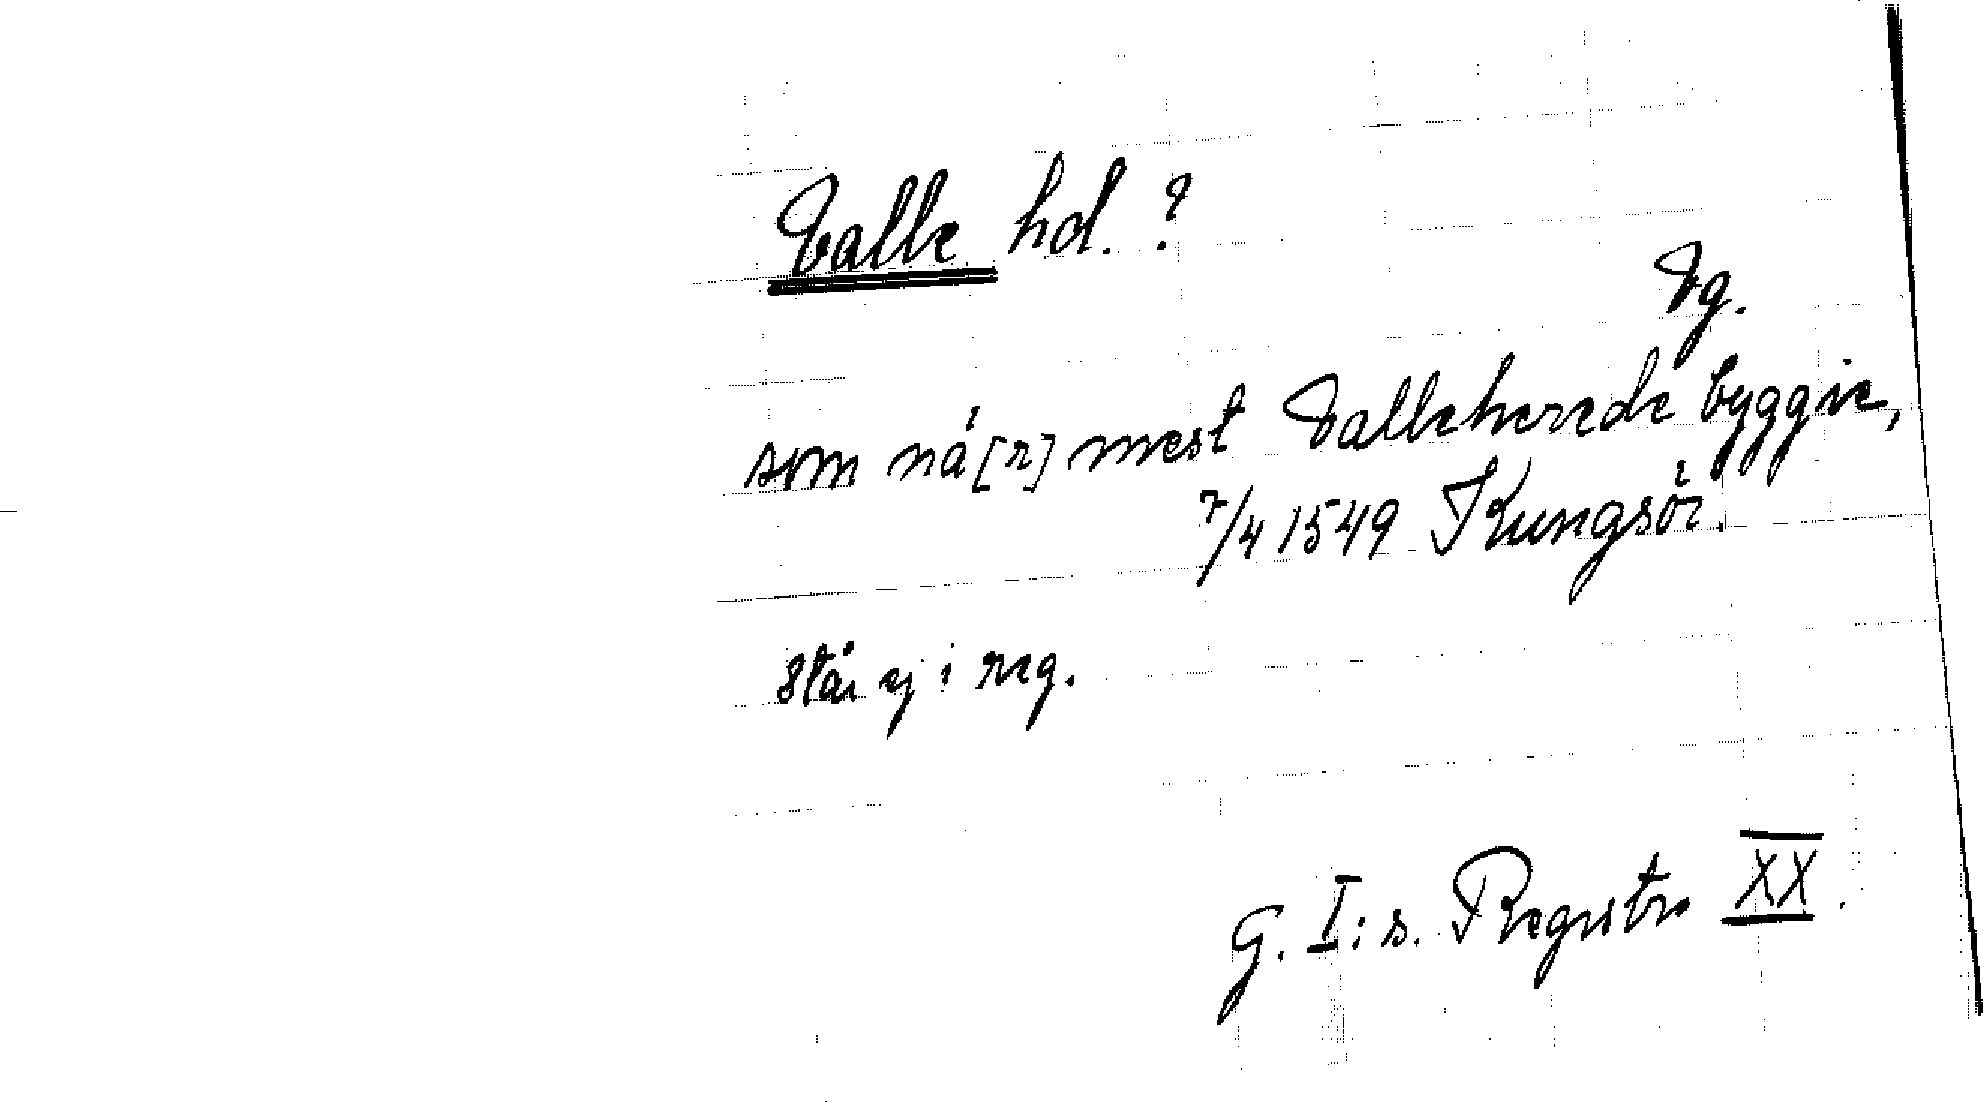 Valle hd. ?
Vg.
som nå[r] mest Valleherede byggie,
7/4 1549 Kungsör.
Står ej i reg.
G. I:s. Registr. XX.